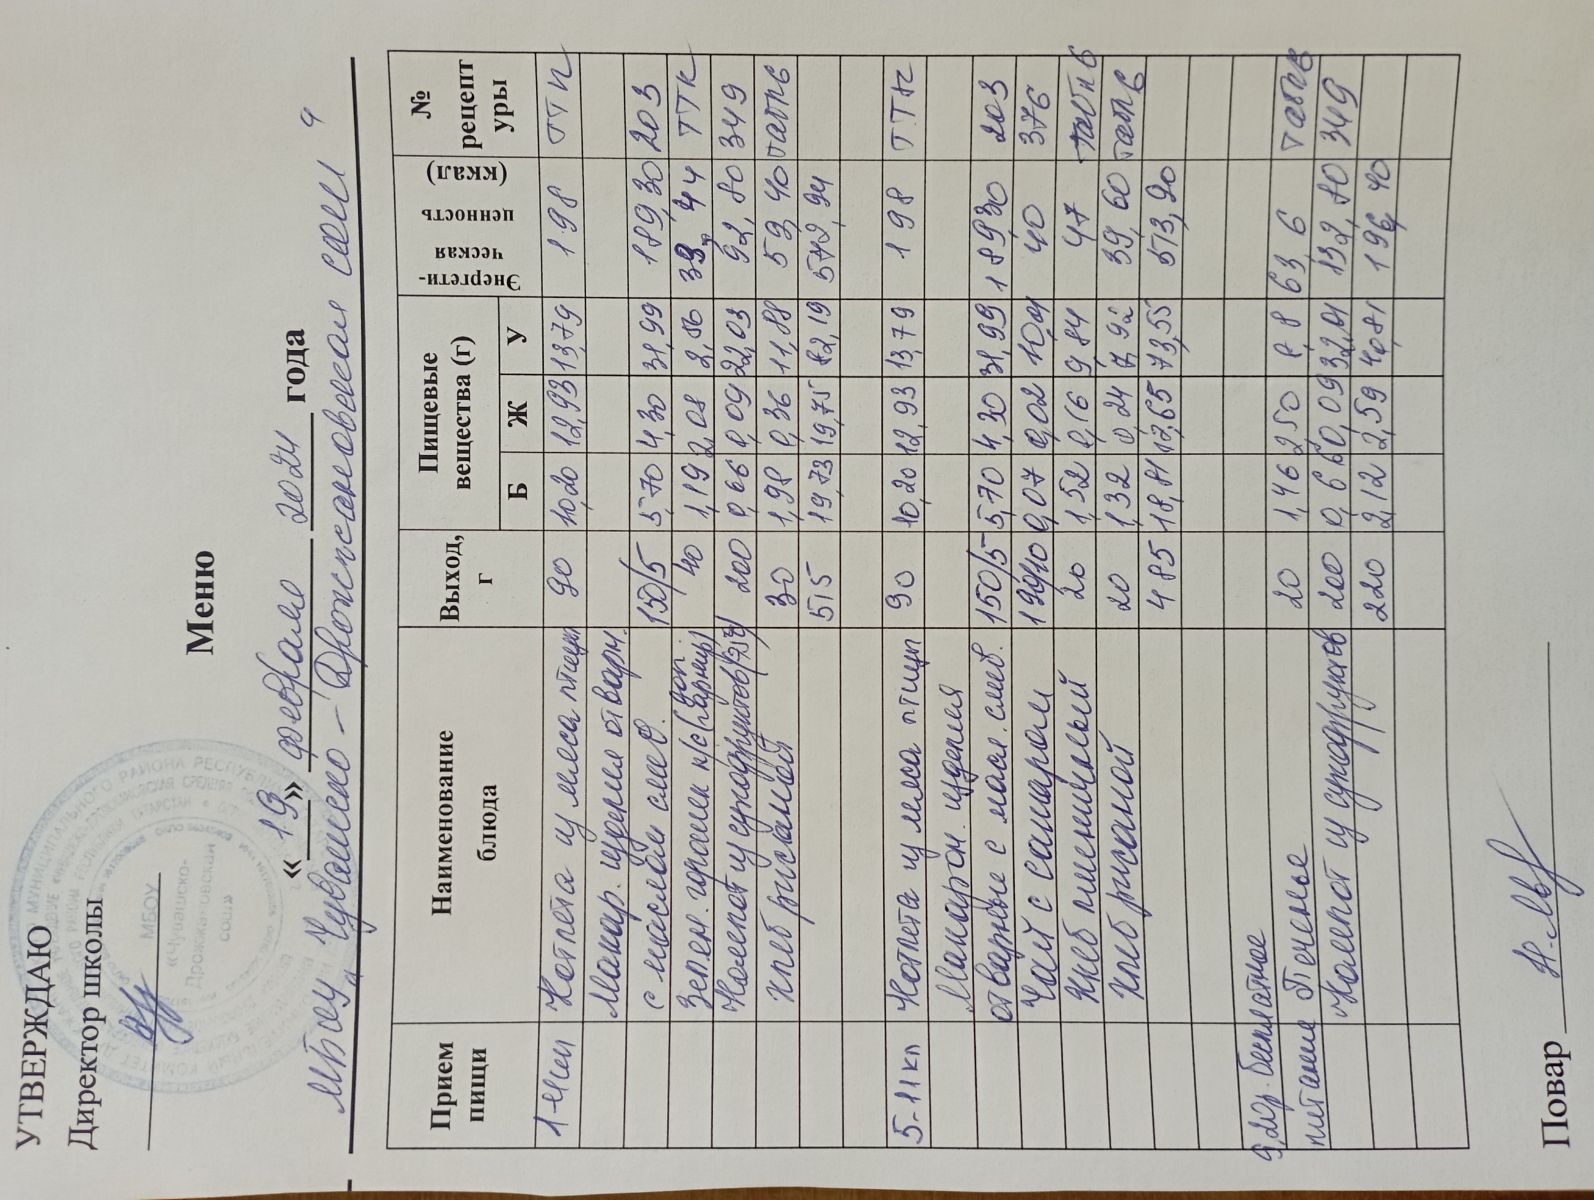 УТВЕРЖДАЮ
Директор школы
МБОУ
«Чувашско-
Дрожжановская
СОШ»
Меню
« 19 » февраля 2024 года
МБОУ "Чувашско - Дрожжановская СОШ"
Прием пищи | Наименование блюда | Выход, г | Пищевые вещества (г) Б Ж У | Энергети-ческая ценность (ккал) | № рецептуры
1-4кл Котлета из мяса птицы 90 10,20 12,93 13,79 198 ТТК
Макар. изделия отварн.
с маслом слив. 150/5 5,70 4,30 31,99 189,30 203
Зелен. горошек к/с (доп. гарнир) 40 1,19 2,08 2,56 33,44 ТТК
Компот из сухофруктов (75г) 200 0,66 0,09 22,03 92,80 349
Хлеб ржаной 30 1,98 0,36 11,88 59,40 табл6
515 19,73 19,75 82,19 572,94
5-11кл Котлета из мяса птицы 90 10,20 12,93 13,79 198 ТТК
Макарон. изделия
отварные с масл. слив. 150/5 5,70 4,30 31,99 189,30 203
Чай с сахаром 190/10 0,07 0,02 10,01 40 376
Хлеб пшеничный 20 1,52 0,16 9,84 47 табл 6
Хлеб ржаной 20 1,32 0,24 7,92 39,60 табл6
485 18,81 17,65 73,55 513,90
бесплатное
питание Печенье 20 1,46 2,50 8,8 63,6 табл6
Компот из сухофруктов 200 0,66 0,09 32,01 132,80 349
220 2,12 2,59 40,81 196,40
Повар